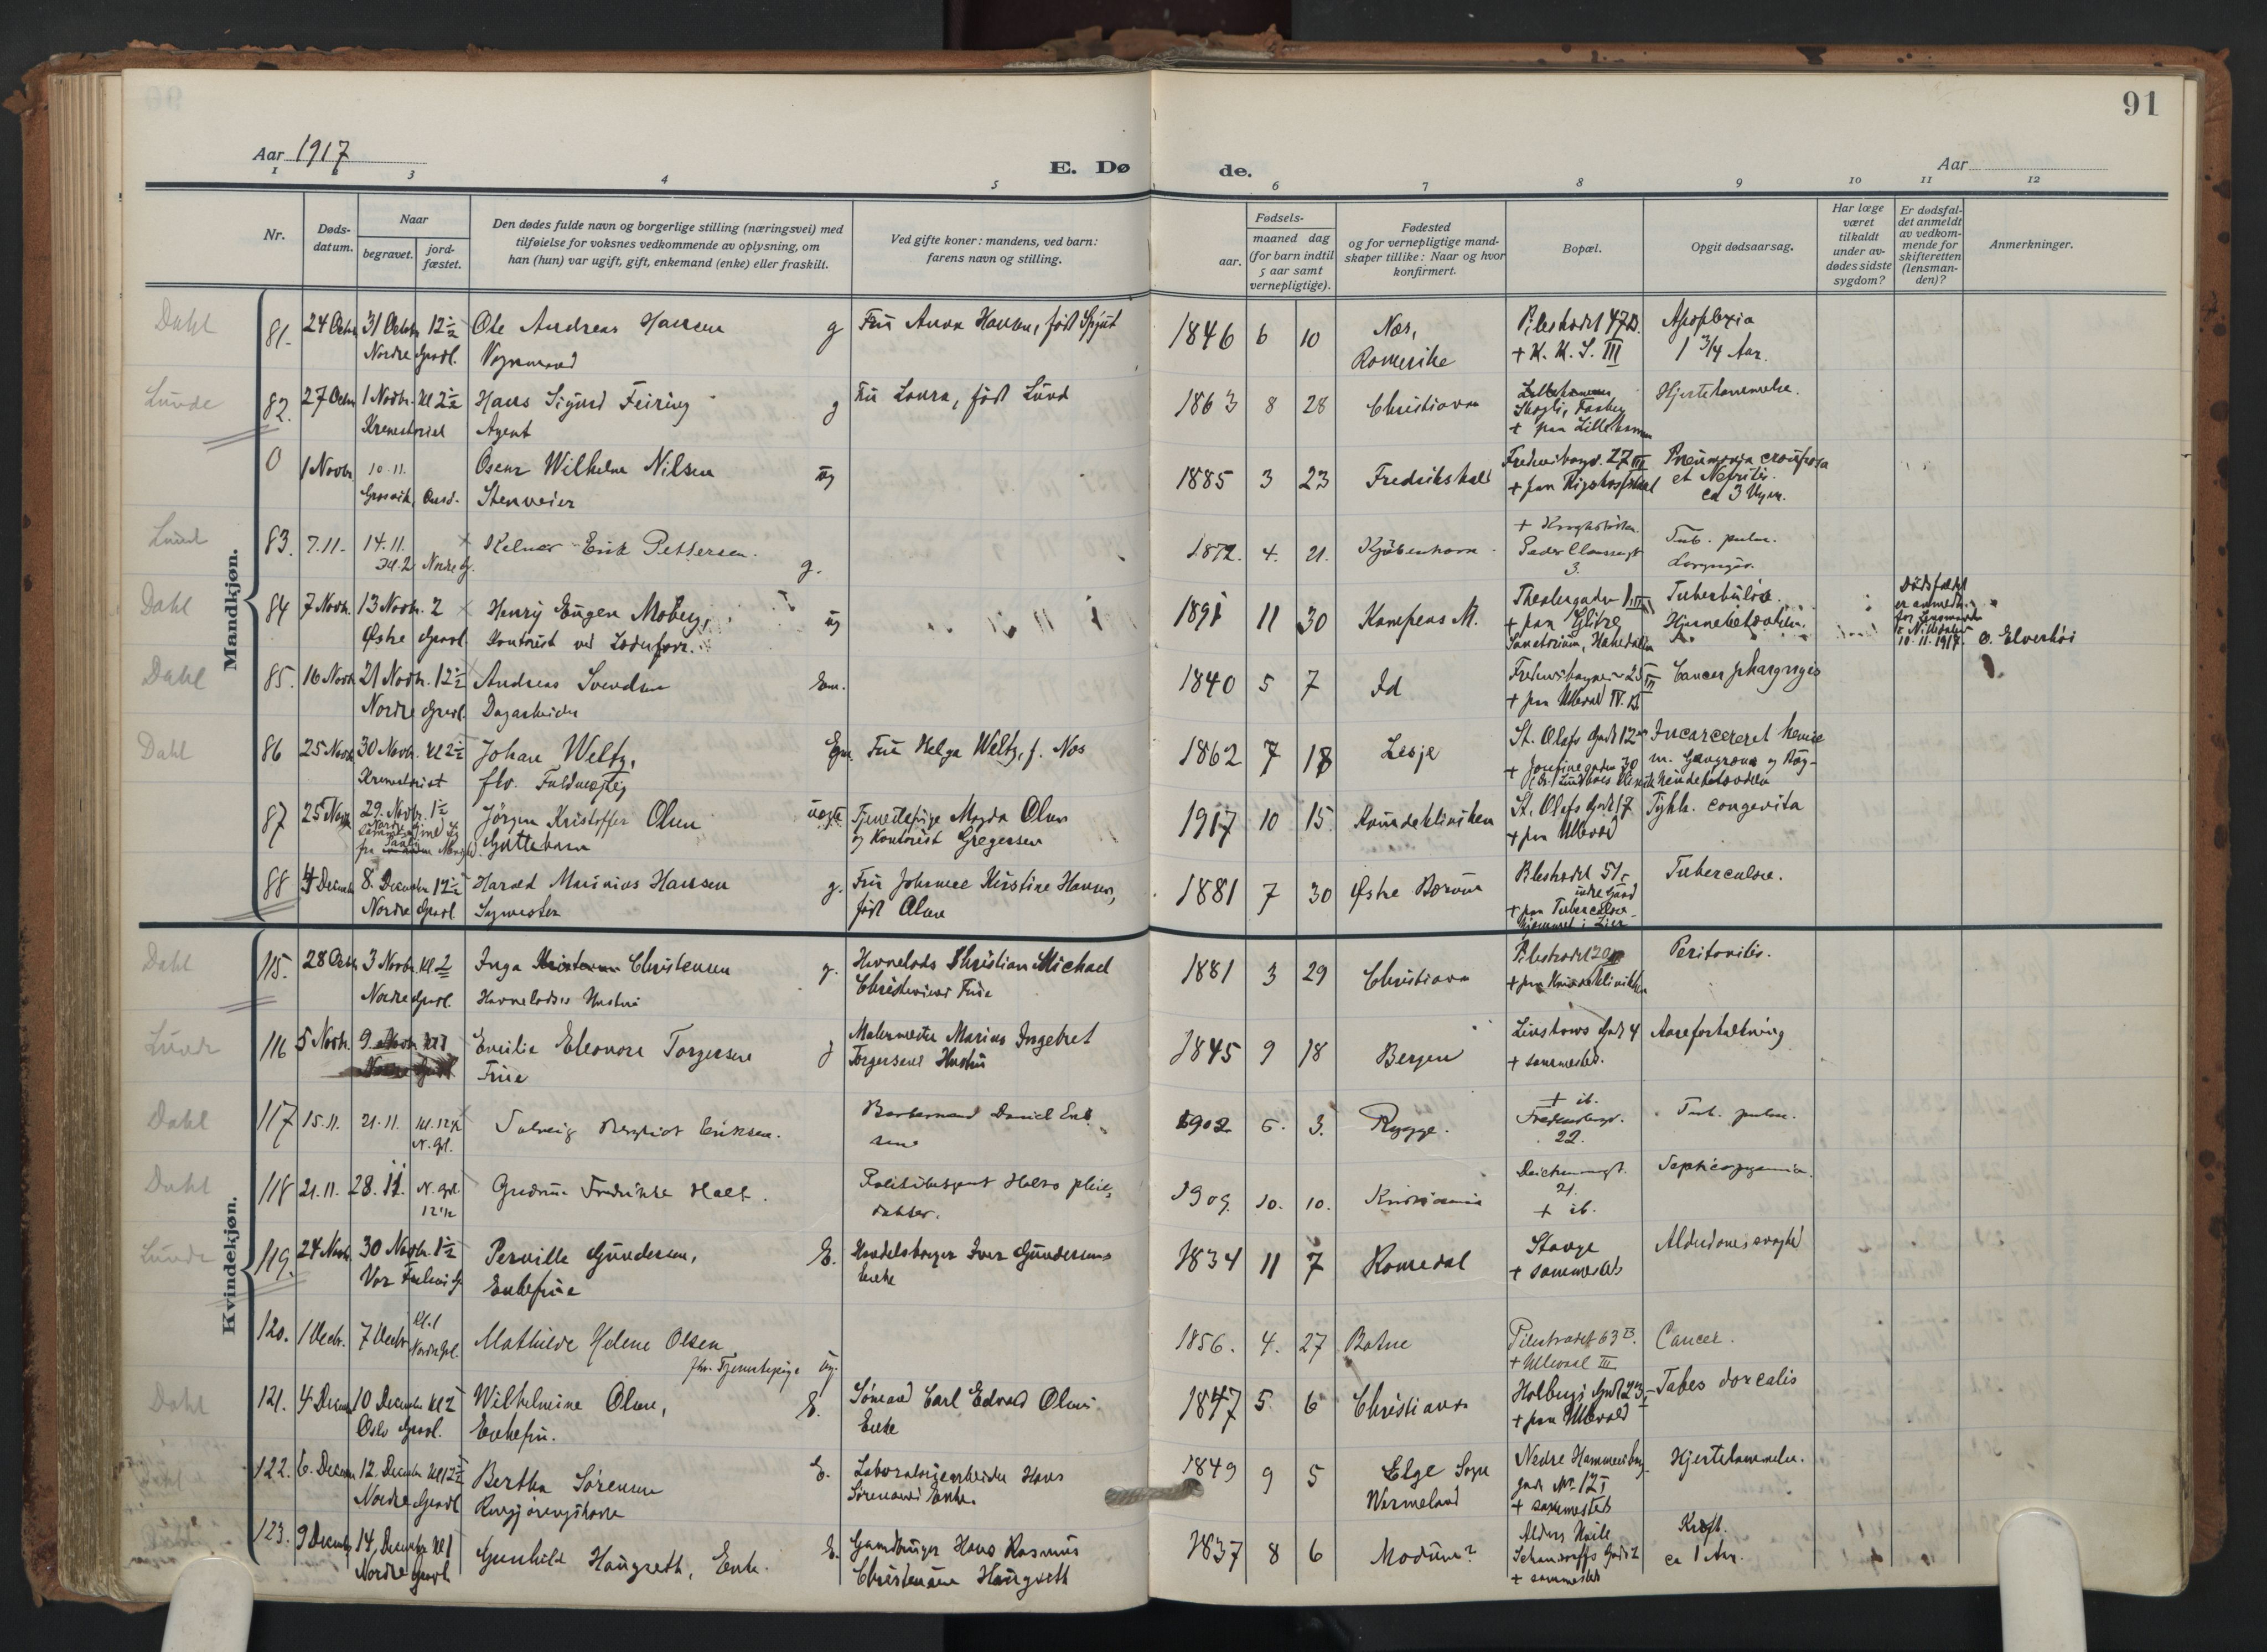 91
Aar 1917
E. Dø de.
Aar
1 2 3 4 5 6 7 8 9 10 11 12
Nr.
Døds-
datum.
Naar
begravet.
jord-
fæstet.
Den dødes fulde navn og borgerlige stilling (næringsvei) med
tilføielse for voksnes vedkommende av oplysning, om
han (hun) var ugift, gift, enkemand (enke) eller fraskilt.
Ved gifte koner: mandens, ved barn:
farens navn og stilling.
Fødsels-
aar.
maaned dag
(for barn indtil
5 aar samt
vernepligtige).
Fødested
og for vernepligtige mand-
skaper tillike: Naar og hvor
konfirmert.
Bopæl.
Opgit dødsaarsag.
Har læge
været
tilkaldt
under av-
dødes sidste
sygdom?
Er dødsfal-
det anmeldt
av vedkom-
mende for
skifteretten
(lensman-
den)?
Anmerkninger.
Mandkjøn.
Dahl 81. 24 Octbr 31 Octobr 12½ Ole Andreas Hansen g Fru Anna Hansen, født Spjut 1846 6 10 Næs, Pilestrædet 47B. Apoplexia
Nordre Gravl. Vognmand Romerike + K. K. S. III 1 3/4 Aar.
Lunde 82. 27 Octbr 1 Novbr. Kl 2½ Hans Sigurd Feiring g Fru Laura, født Lund 1863 8 28 Christiania Skogli, Faaberg Hjertelammelse.
Krematoriet Agent + paa Lillehammer
0 1 Novbr. 10.11. Oscar Wilhelm Nilsen ug 1885 3 23 Fredrikshald Fredensborgv. 27 III Pneumonia crouposa
Stenveier + paa Rigshospitalet et Nefritis.
ca 3 Uger.
83. 7.11. 14.11. Kelner Erik Pettersen. g. 1872. 4. 21. Kjøbenhavn Peder Claussøngt 3. Tub. pulm.
Kl. 2 Nordre G. Laryngis.
Dahl 84 7 Novbr. 13 Novbr. 2 Henry Eugen Moberg, ug 1891 11 30 Kampens M. Theatergaden 1 III Tuberkuløse
Østre Gravl. Kontorist + paa Glitre Hjernebetændelse.
Sanatorium, Hakedalen
Dødsfaldet
er anmeldt
for Lensmanden
i Nittedalen
10.11.1917. o. Elverhöi
Dahl 85. 16 Novbr 21 Novbr. 12½ Andreas Svendsen Em. 1840 5 7 Id Fredensborgveien 25 II Cancer pharyngis
Nordre Gravl. Dagarbeider + paa Ullevaal IV.
Dahl 86 25 Novbr 30 Novbr. Kl 2½ Johan Weltz, Fru Helga Weltz, f. Nos 1862 7 18 Lesje St. Olafs Gade 12 Incarcereret hernie
Krematoriet fhv. Fuldmægtig + Josefinegaden 30 m. Gangræna og Bug-
hindebetændelse
87 25 Novbr 29. Novbr. 1½ Jørgen Kristoffer Olsen uegte Tjenestepige Magda Olsen 1917 10 15 Kvindeklinikken St. Olafs Gade 17 Syph. congenita
Guttebarn og Kontorist Gregersen + paa Ullevaal
88 4 Decembr 8. Decembr 12½ Harald Marinius Hansen g. Fru Johanne Kirstine Hansen, 1881 7 30 Østre Bærum Pilestrædet 51, Tuberculose.
Nordre Gravl født Olsen indre Gaard
+ paa Tuberculose-
hjemmet i Lier
Kvindekjøn.
Dahl 115. 28 Octbr 3 Novbr. Kl. 2 Inga Christensen g. Havnelods Christian Michael 1881 3 29 Christiania Peritonitis.
Nordre Gravl. Havnelodses Hustru Christensens Frue + paa Kvindeklinikken
Lunde 116 5 Novbr. 9. Novbr Kl 1 Emilie Eleonore Torgersen g Malermester Marius Ingebret 1845 9 18 Bergen Linstows Gade 4 Aareforkalkning
Frue Torgersens Hustru + sammesteds.
Dahl 117 15.11. 21.11. Kl. 12½ Solveig Eriksen. Daniel Erik- 1902. 5. 3. Rygge. + ib. Tub. pulm.
N. Gl. sen Fredensborgv. 22.
Dahl 118 21.11. 28.11. N. Gl Gudrun Fredrikke Holt. Holts pleie- 1909. 10. 10. Kristiania Deichmansgt. 21. Septicopyæmia.
12½ datter. + ib.
Lunde 119. 24 Novbr. 30 Novbr. 1½ Pernille Gundersen, E. Handelsborger Iver Gundersens 1834 11 7 Romedal Stange Alderdomssvaghed
Vor Frelsers G. Enkefrue Enke + sammesteds
120. 1 Decbr. 7 Decbr Kl. 1 Mathilde Helene Olsen 1856. 4. 27 Botne Pilestrædet 63 B. Cancer.
Nordre Grl. fhv. Tjenestepige ug. + Ullevaal III
Dahl 121. 4 Decembr 10 Decembr Kl 2 Wilhelmine Olsen, E. Sømand Carl Edvard Olsens 1847 5 6 Christiania Holbergs Gade 23 Tabes dorsalis
Oslo Gravl. Enkefru. Enke + paa Ullevaal
122. 6. Decembr 12. Decembr Kl 12½ Bertha Sørensen E. Laboratoriearbeider Hans 1849 9 5 Elge Sogn Nedre Hammersborg- Hjertelammelse.
Nordre Gravl Rengjøringskone Sørensens Enke. Wermeland gade No 12 I
+ sammesteds
123. 9 Decembr 14. Decembr Kl 1 Gunhild Haugreth, Enke. E. Gaardbruger Hans Rasmus 1837 8 6 Modum? Alders Hvile Kræft.
Nordre Gravl. Christensen Haugreth Schandorffs Gade 2 ca 1 Aar.
+ sammesteds